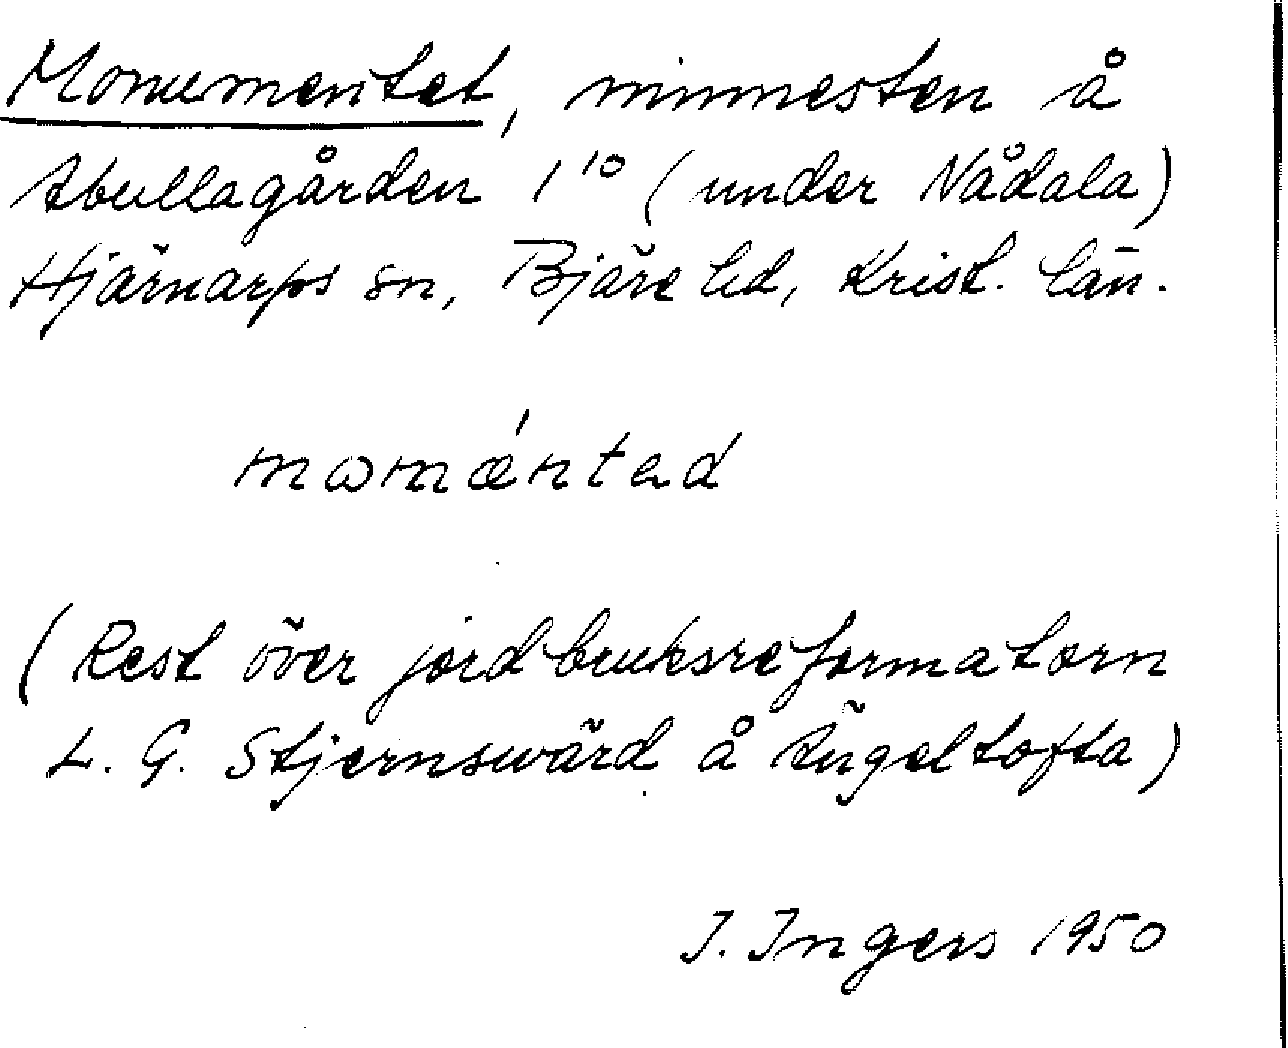 Monumentet, minnesten å
Abullagården 1¹⁰ (under Nådala)
Hjärnarps sn, Bjäre hd, Krist. län.
momǽntad
(Rest över jordbruksreformatorn
L. G. Stjernswärd å Ängeltofta)
I. Ingers 1950